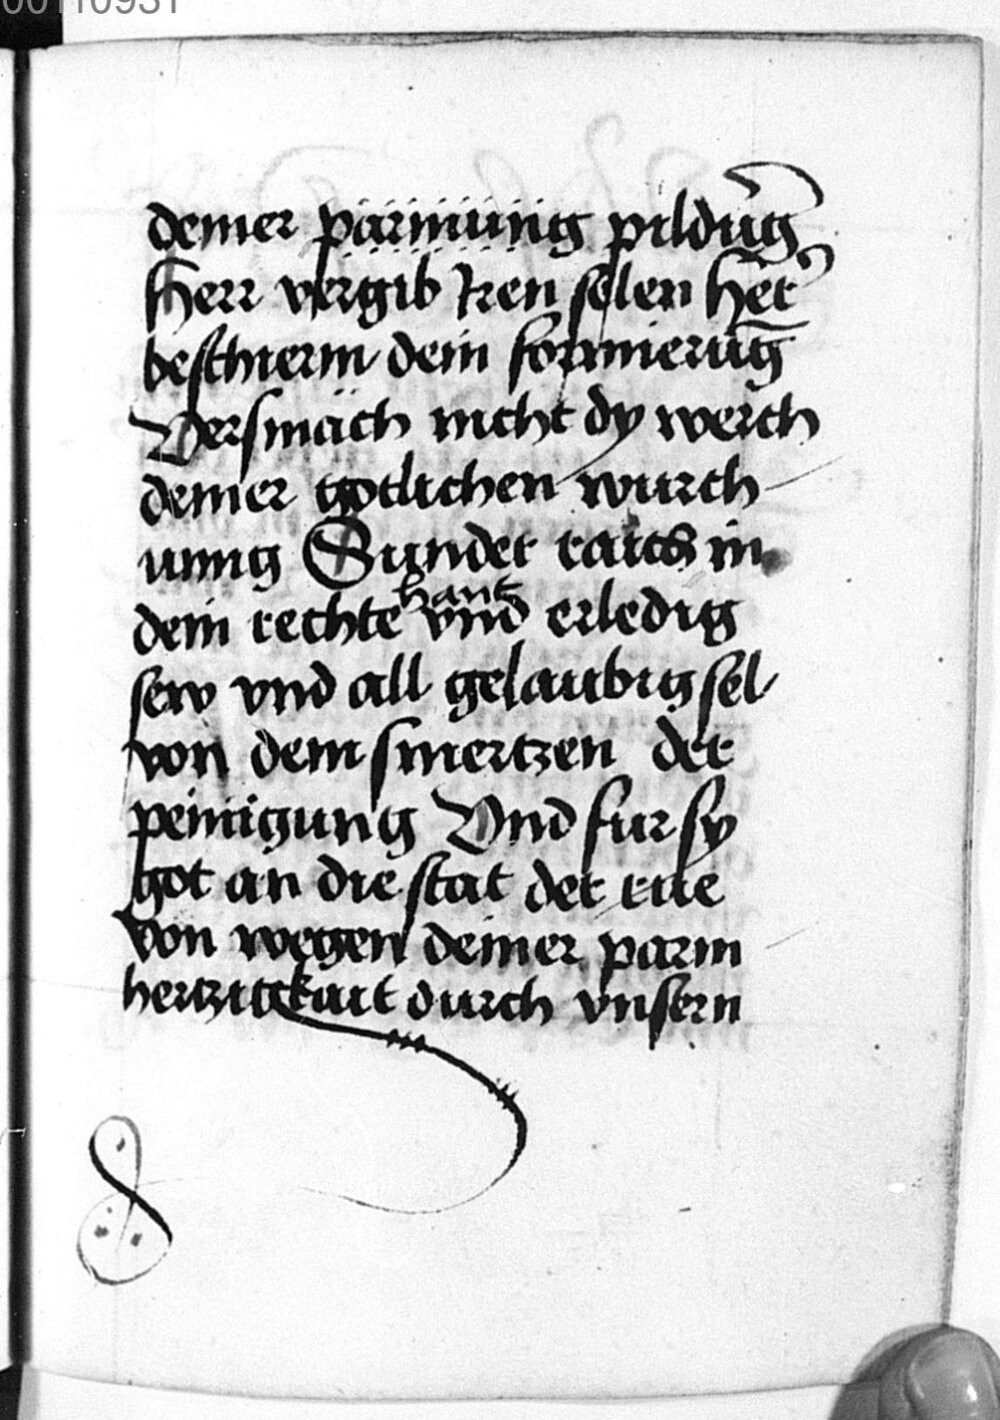 00110931
deiner parmung pildūg
Herr vergib Iren selen her̄
beschierm dein formierūg
Versmäch nicht dy werch
deiner gotlichen wurch
unng Sunder raichs in
dein rechte hant vnd erledig
sew vnd all gelaubig sel
von dem smertzen der
peinigung Vnd fur sy
got an die stat der rue
von wegen deiner parm
hertzigkait durch vnsern